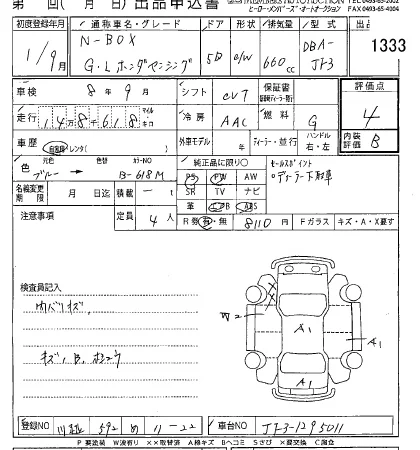 第 回( 月 日) 出品申込書
ヒーローメンバーズ・オートオークション FAX 0493-65-4004
初度登録年月 通称車名・グレード ドア 形状 排気量 型式 出品
1/9月 N-BOX G・Lホンダセンシング 5D O/W 660cc DBA-JF3 1333
車検 8年9月 シフト CVT 保証書 評価点
走行 14万8千618 マイル・キロ 冷房 AAC 燃料 G 4
車歴 自家用 レンタ( ) 外車モデル 年 ディーラー・並行 ハンドル 右・左 内装評価 B
色 色替 カラーNO 純正品に限り○ セールスポイント
ブルー → B-618M PS PW AW ・ディーラー下取車
名義変更期限 月 日迄 積載 t SR TV ナビ
注意事項 定員 4人 革 エアB ABS
R券 有・無 8110円 Fガラス キズ・A・X要す
検査員記入
内バリキズ,
キズ,B,ホシュウ
W2 A1 A1
A1
登録NO 川越 592 め 11-22 車台NO JF3-1295011
P 要塗装 W波有り ××取替済 A線キズ Bヘコミ Sさび ×要交換 C腐仓